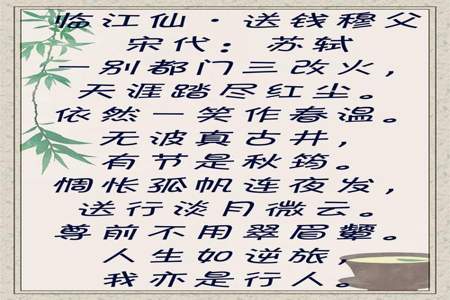 临江仙·送钱穆父
宋代：苏轼
一别都门三改火，
天涯踏尽红尘。
依然一笑作春温。
无波真古井，
有节是秋筠。
惆怅孤帆连夜发，
送行淡月微云。
尊前不用翠眉颦。
人生如逆旅，
我亦是行人。